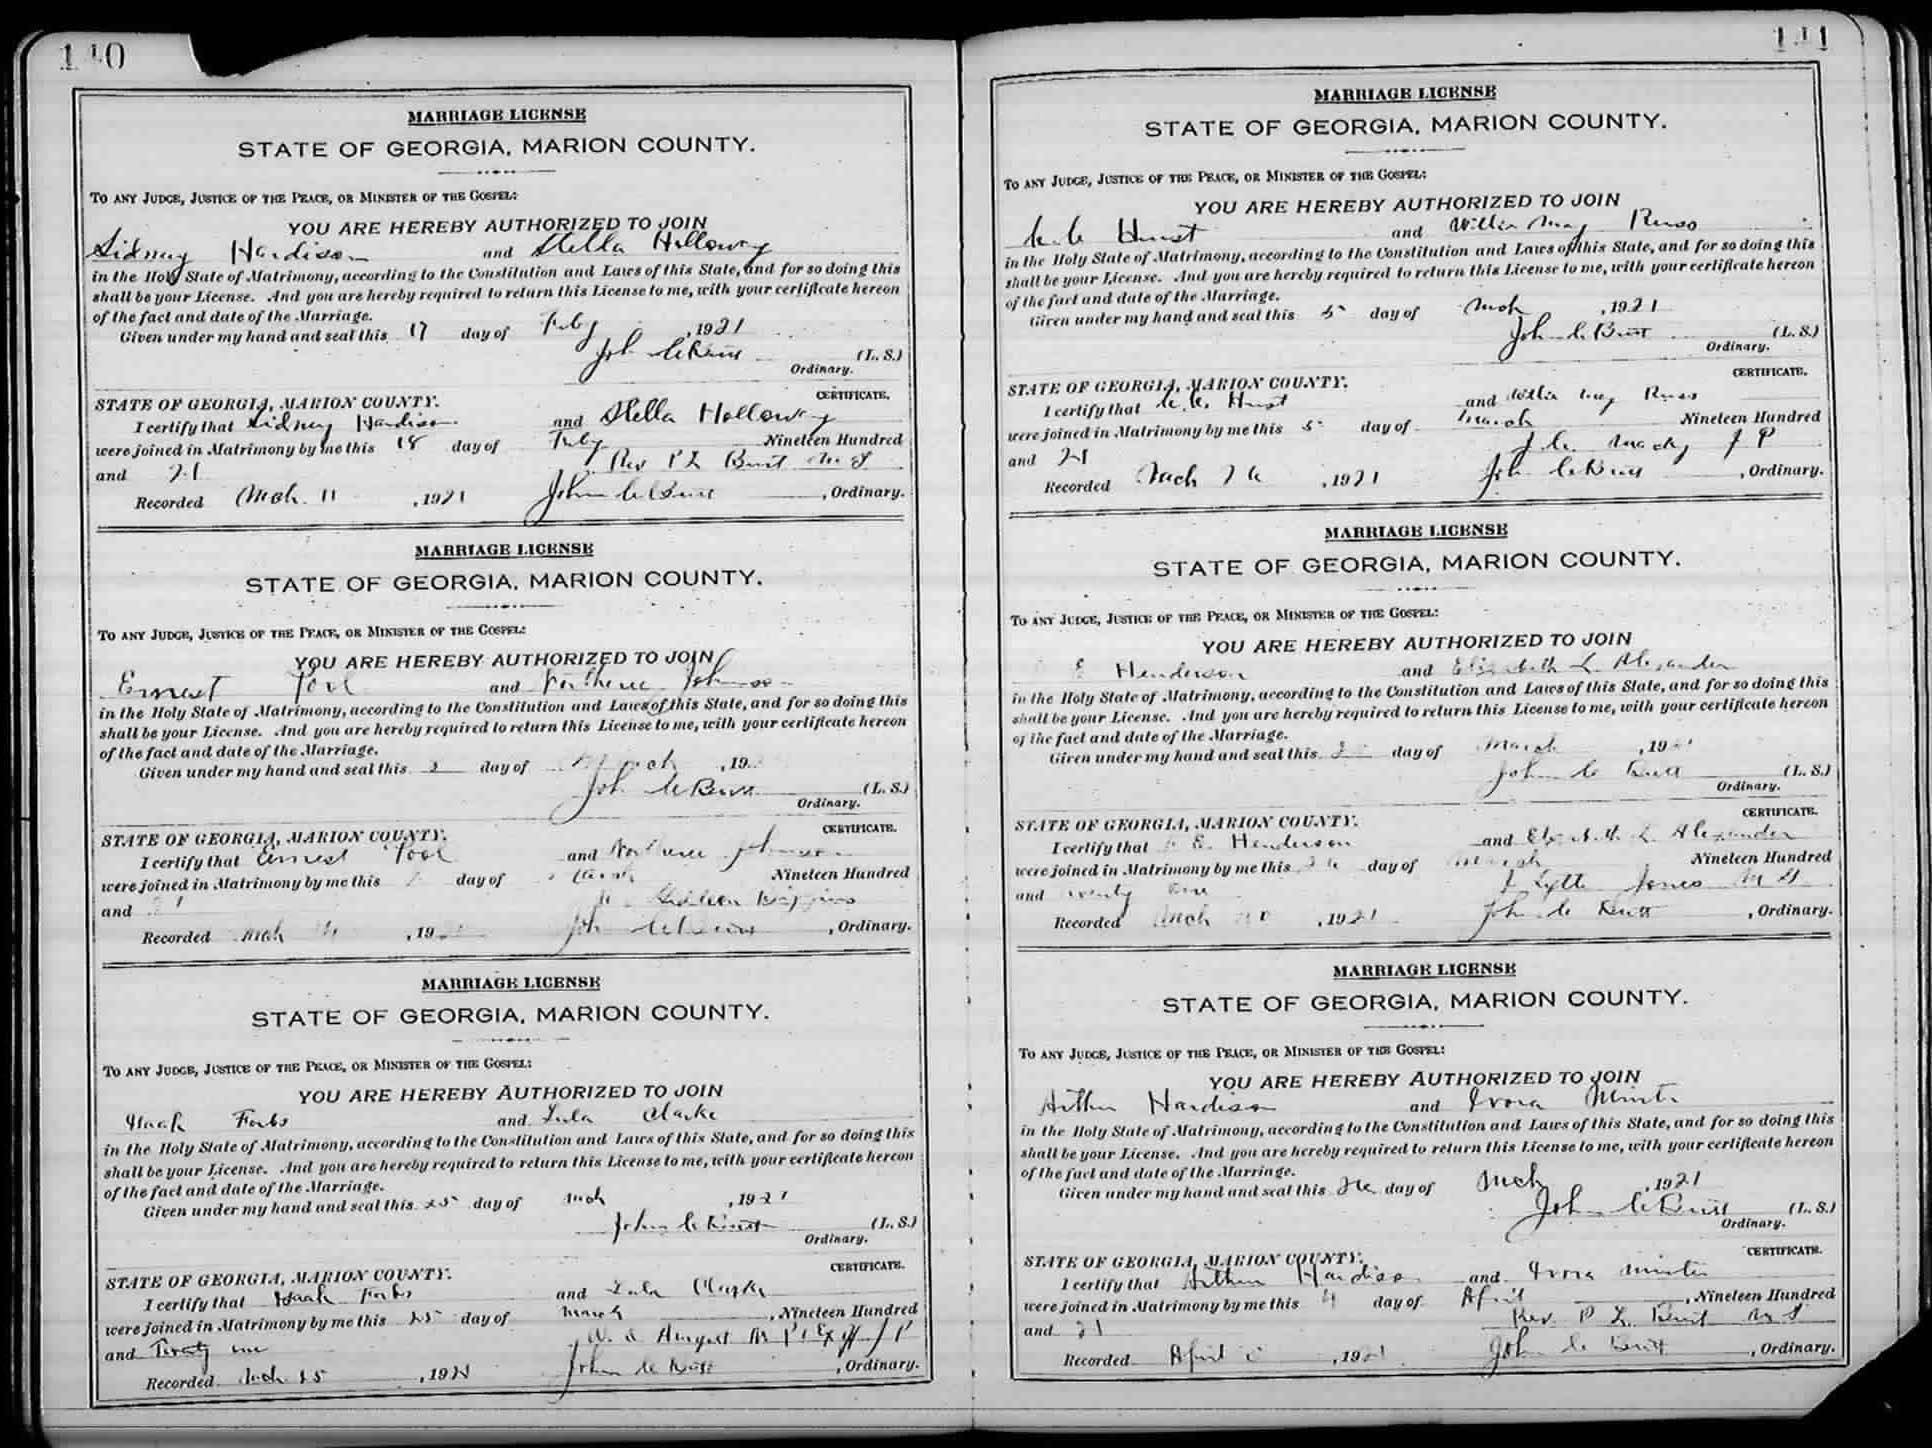 140
MARRIAGE LICENSE
STATE OF GEORGIA, MARION COUNTY.
TO ANY JUDGE, JUSTICE OF THE PEACE, OR MINISTER OF THE GOSPEL:
YOU ARE HEREBY AUTHORIZED TO JOIN
Sidney Hardison and Stella Holloway
in the Holy State of Matrimony, according to the Constitution and Laws of this State, and for so doing this
shall be your License. And you are hereby required to return this License to me, with your certificate hereon
of the fact and date of the Marriage.
Given under my hand and seal this 17 day of Feby, 1921
John C Butt (L. S.)
Ordinary.
CERTIFICATE.
STATE OF GEORGIA, MARION COUNTY.
I certify that Sidney Hardison and Stella Holloway
were joined in Matrimony by me this 18 day of Feby Nineteen Hundred
and 21 Rev P L Burt M G
Recorded Mch. 11, 1921 John C Butt, Ordinary.
MARRIAGE LICENSE
STATE OF GEORGIA, MARION COUNTY.
TO ANY JUDGE, JUSTICE OF THE PEACE, OR MINISTER OF THE GOSPEL:
YOU ARE HEREBY AUTHORIZED TO JOIN
Ernest Pool and Johnson
in the Holy State of Matrimony, according to the Constitution and Laws of this State, and for so doing this
shall be your License. And you are hereby required to return this License to me, with your certificate hereon
of the fact and date of the Marriage.
Given under my hand and seal this day of March, 19
John C Butt (L. S.)
Ordinary.
CERTIFICATE.
STATE OF GEORGIA, MARION COUNTY.
I certify that Ernest Pool and Johnson
were joined in Matrimony by me this day of March Nineteen Hundred
and 21
Recorded Mch, 19 John C Butt, Ordinary.
MARRIAGE LICENSE
STATE OF GEORGIA, MARION COUNTY.
TO ANY JUDGE, JUSTICE OF THE PEACE, OR MINISTER OF THE GOSPEL:
YOU ARE HEREBY AUTHORIZED TO JOIN
Forbs and Lula Clarke
in the Holy State of Matrimony, according to the Constitution and Laws of this State, and for so doing this
shall be your License. And you are hereby required to return this License to me, with your certificate hereon
of the fact and date of the Marriage.
Given under my hand and seal this 25 day of Mch, 1921
John C Butt (L. S.)
Ordinary.
CERTIFICATE.
STATE OF GEORGIA, MARION COUNTY.
I certify that Forbs and Lula Clarke
were joined in Matrimony by me this 25 day of March, Nineteen Hundred
and Twenty one J P
Recorded Mch 25, 1921 John C Butt, Ordinary.
141
MARRIAGE LICENSE
STATE OF GEORGIA, MARION COUNTY.
TO ANY JUDGE, JUSTICE OF THE PEACE, OR MINISTER OF THE GOSPEL:
YOU ARE HEREBY AUTHORIZED TO JOIN
Hurst and Willie May Russ
in the Holy State of Matrimony, according to the Constitution and Laws of this State, and for so doing this
shall be your License. And you are hereby required to return this License to me, with your certificate hereon
of the fact and date of the Marriage.
Given under my hand and seal this 5 day of Mch, 1921
John C Butt (L. S.)
Ordinary.
CERTIFICATE.
STATE OF GEORGIA, MARION COUNTY.
I certify that Hurst and Willie May Russ
were joined in Matrimony by me this 5 day of March Nineteen Hundred
and 21 J P
Recorded Mch 26, 1921 John C Butt, Ordinary.
MARRIAGE LICENSE
STATE OF GEORGIA, MARION COUNTY.
TO ANY JUDGE, JUSTICE OF THE PEACE, OR MINISTER OF THE GOSPEL:
YOU ARE HEREBY AUTHORIZED TO JOIN
E Henderson and Elizabeth L. Alexander
in the Holy State of Matrimony, according to the Constitution and Laws of this State, and for so doing this
shall be your License. And you are hereby required to return this License to me, with your certificate hereon
of the fact and date of the Marriage.
Given under my hand and seal this day of March, 1921
John C Butt (L. S.)
Ordinary.
CERTIFICATE.
STATE OF GEORGIA, MARION COUNTY.
I certify that E. Henderson and Elizabeth L. Alexander
were joined in Matrimony by me this day of March Nineteen Hundred
and twenty one Jones M G
Recorded Mch, 1921 John C Butt, Ordinary.
MARRIAGE LICENSE
STATE OF GEORGIA, MARION COUNTY.
TO ANY JUDGE, JUSTICE OF THE PEACE, OR MINISTER OF THE GOSPEL:
YOU ARE HEREBY AUTHORIZED TO JOIN
Arthur Hardison and Ivora Minter
in the Holy State of Matrimony, according to the Constitution and Laws of this State, and for so doing this
shall be your License. And you are hereby required to return this License to me, with your certificate hereon
of the fact and date of the Marriage.
Given under my hand and seal this 26 day of Mch, 1921
John C Butt (L. S.)
Ordinary.
CERTIFICATE.
STATE OF GEORGIA, MARION COUNTY.
I certify that Arthur Hardison and Ivora Minter
were joined in Matrimony by me this 4 day of April, Nineteen Hundred
and 21 Rev. P L Burt M G
Recorded April, 1921 John C Butt, Ordinary.